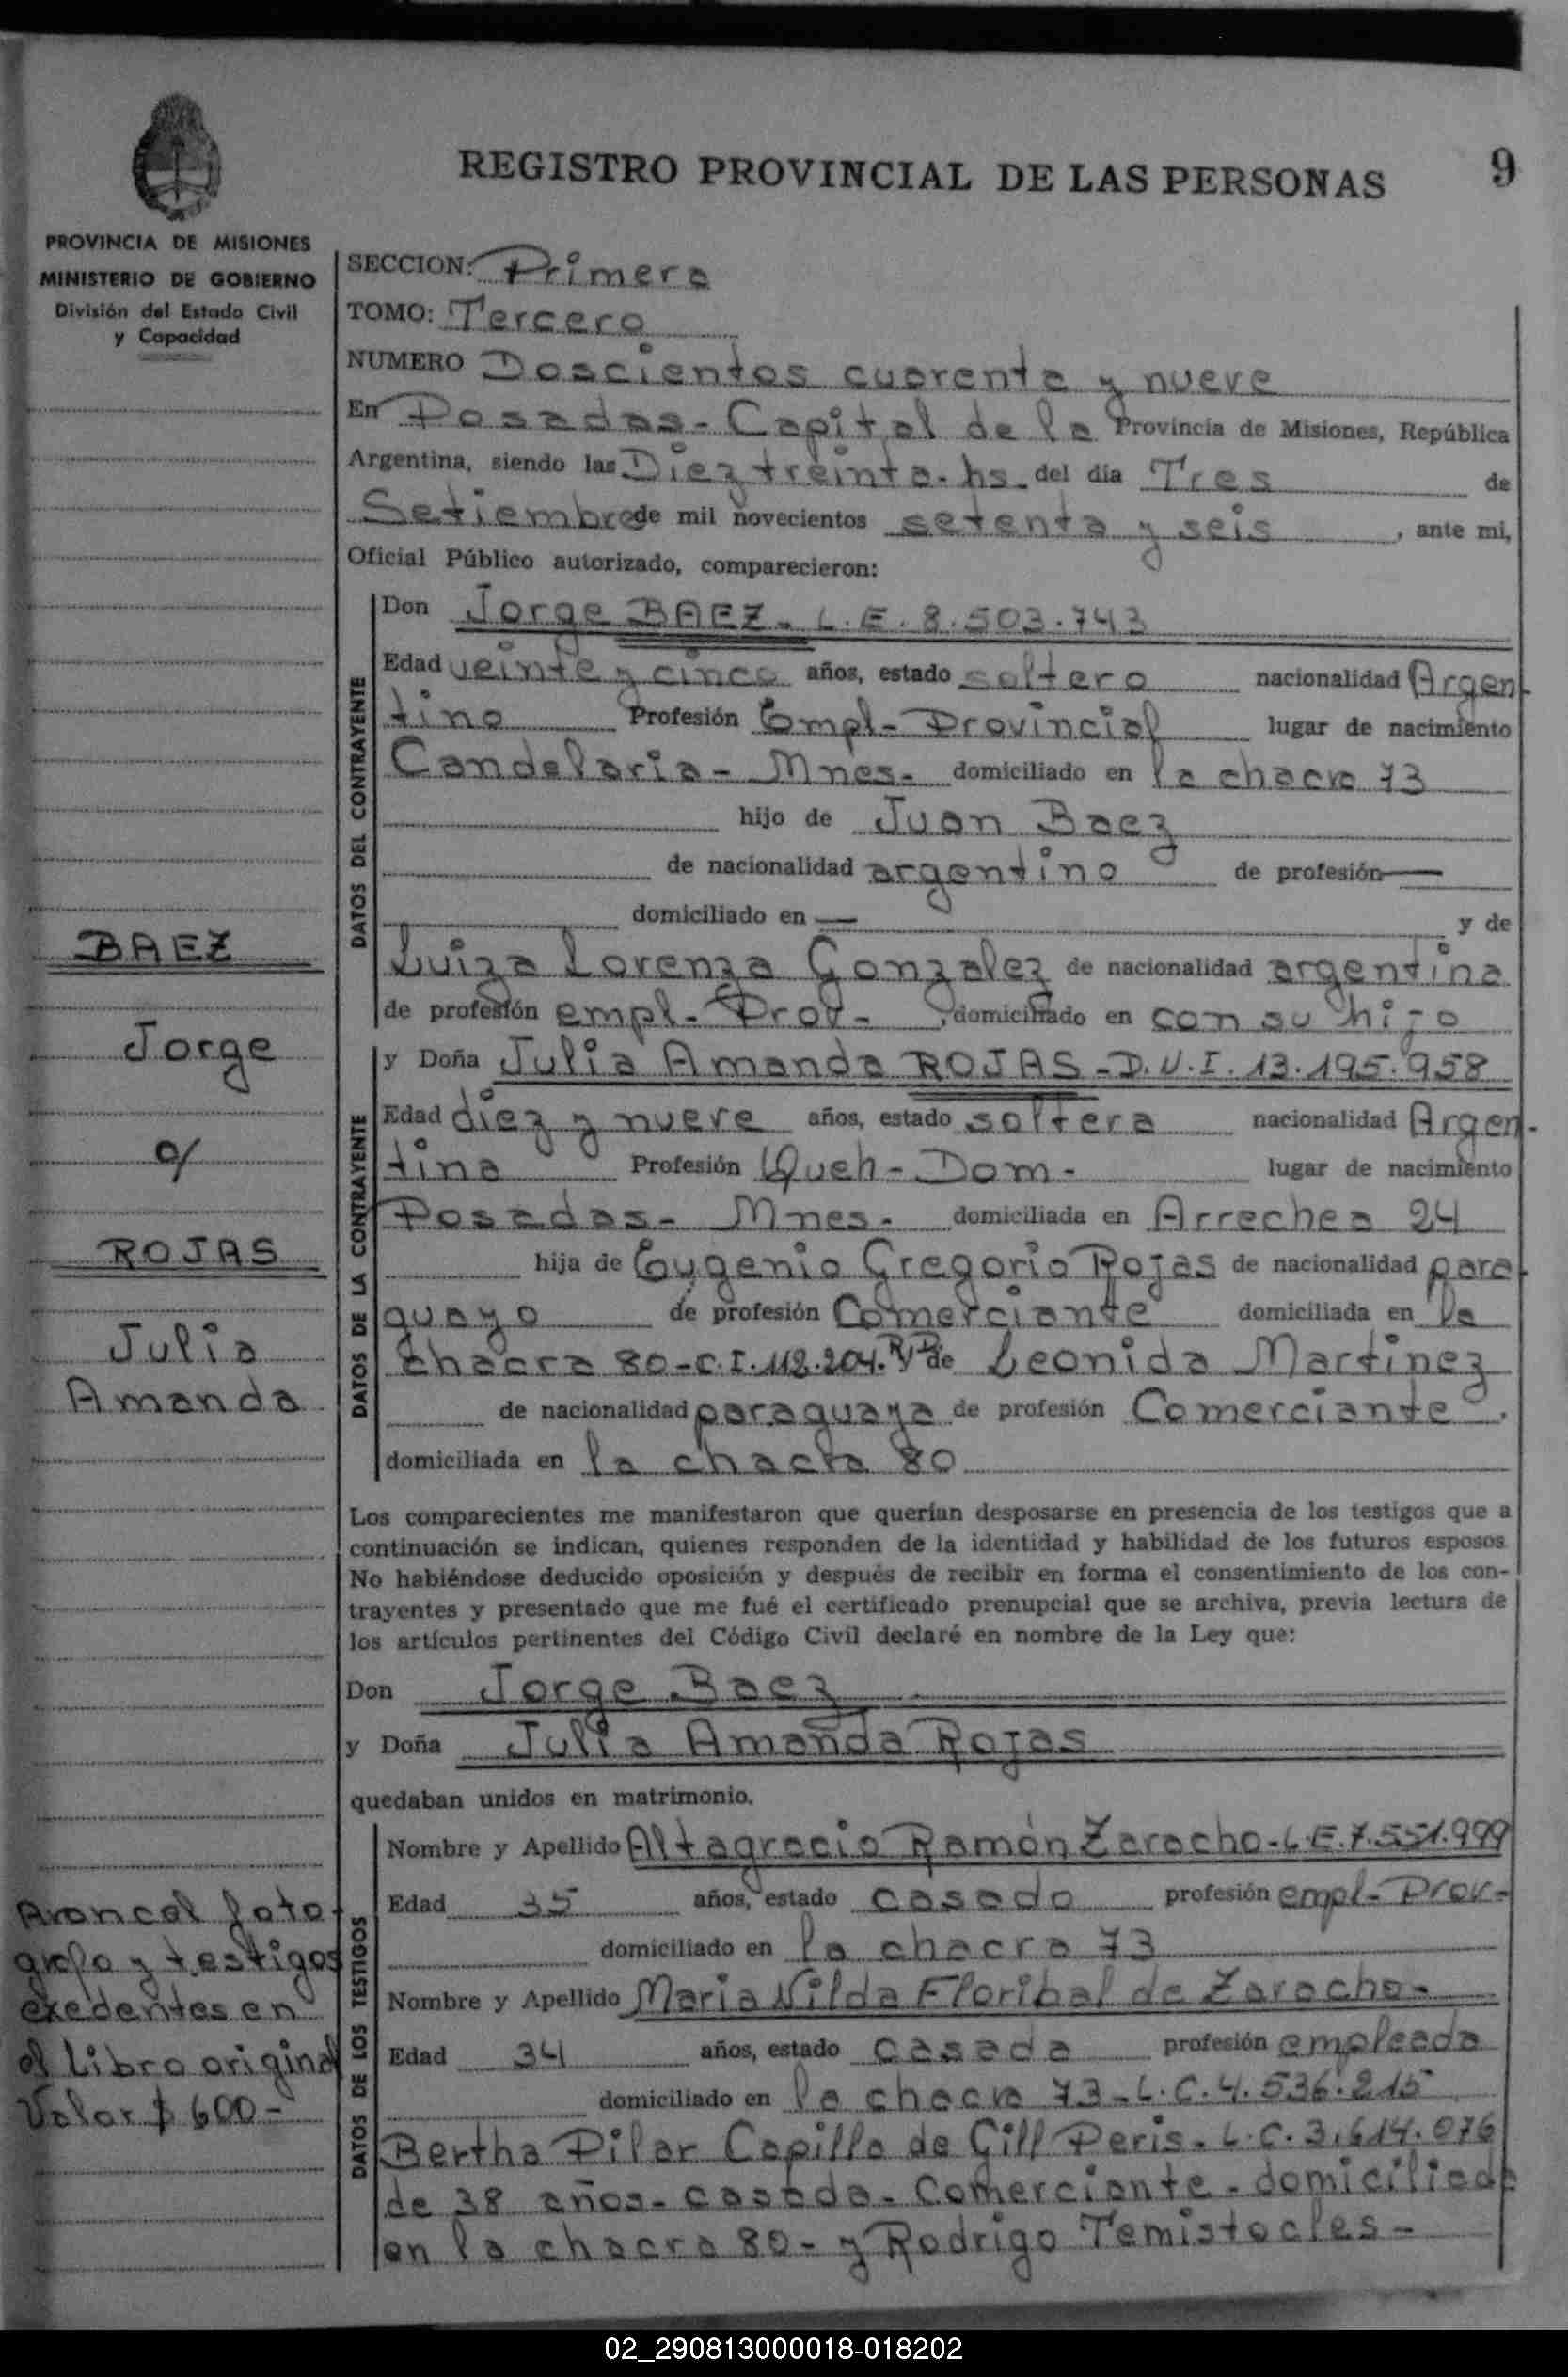 REGISTRO PROVINCIAL DE LAS PERSONAS 9
PROVINCIA DE MISIONES
MINISTERIO DE GOBIERNO
División del Estado Civil
y Capacidad
SECCION: Primera
TOMO: Tercero
NUMERO Doscientos cuarenta y nueve
En Posadas - Capital de la Provincia de Misiones, República
Argentina, siendo las Diez treinta - hs. del día Tres de
Setiembre de mil novecientos setenta y seis, ante mi,
Oficial Público autorizado, comparecieron:
DATOS DEL CONTRAYENTE
Don Jorge BAEZ - L.E. 8.503.743
Edad veinte y cinco años, estado soltero nacionalidad Argen-
tino Profesión Empl- Provincial lugar de nacimiento
Candelaria - Mnes- domiciliado en la chacra 73
hijo de Juan Baez
de nacionalidad argentino de profesión —
domiciliado en — y de
Luiza Lorenza Gonzalez de nacionalidad argentina
de profesión empl- Prov- , domiciliado en con su hijo
DATOS DE LA CONTRAYENTE
y Doña Julia Amanda ROJAS - D.N.I. 13.195.958
Edad diez y nueve años, estado soltera nacionalidad Argen-
tina Profesión Queh- Dom- lugar de nacimiento
Posadas- Mnes- domiciliada en Arrechea 24
hija de Eugenio Gregorio Rojas de nacionalidad para-
guayo de profesión Comerciante domiciliada en la
chacra 80 - C.I. 112.204. y de Leonida Martinez
de nacionalidad paraguaya de profesión Comerciante,
domiciliada en la chacra 80
BAEZ
Jorge
c/
ROJAS
Julia
Amanda
Los comparecientes me manifestaron que querían desposarse en presencia de los testigos que a
continuación se indican, quienes responden de la identidad y habilidad de los futuros esposos
No habiéndose deducido oposición y después de recibir en forma el consentimiento de los con-
trayentes y presentado que me fué el certificado prenupcial que se archiva, previa lectura de
los artículos pertinentes del Código Civil declaré en nombre de la Ley que:
Don Jorge Baez
y Doña Julia Amanda Rojas
quedaban unidos en matrimonio.
DATOS DE LOS TESTIGOS
Nombre y Apellido Altagracio Ramón Zaracho - L.E. 7.551.999
Edad 35 años, estado casado profesión empl- Prov-
domiciliado en la chacra 73
Nombre y Apellido Maria Nilda Floribal de Zaracho-
Edad 34 años, estado casada profesión empleada
domiciliado en la chacra 73 - L.C. 4.536.215
Bertha Pilar Capilla de Gill Peris - L.C. 3.614.076
de 38 años - casada - Comerciante - domiciliada
en la chacra 80 - y Rodrigo Temistocles -
Arancel foto
grafo y testigos
exedentes en
el libro original
Valor $ 600-
02_290813000018-018202